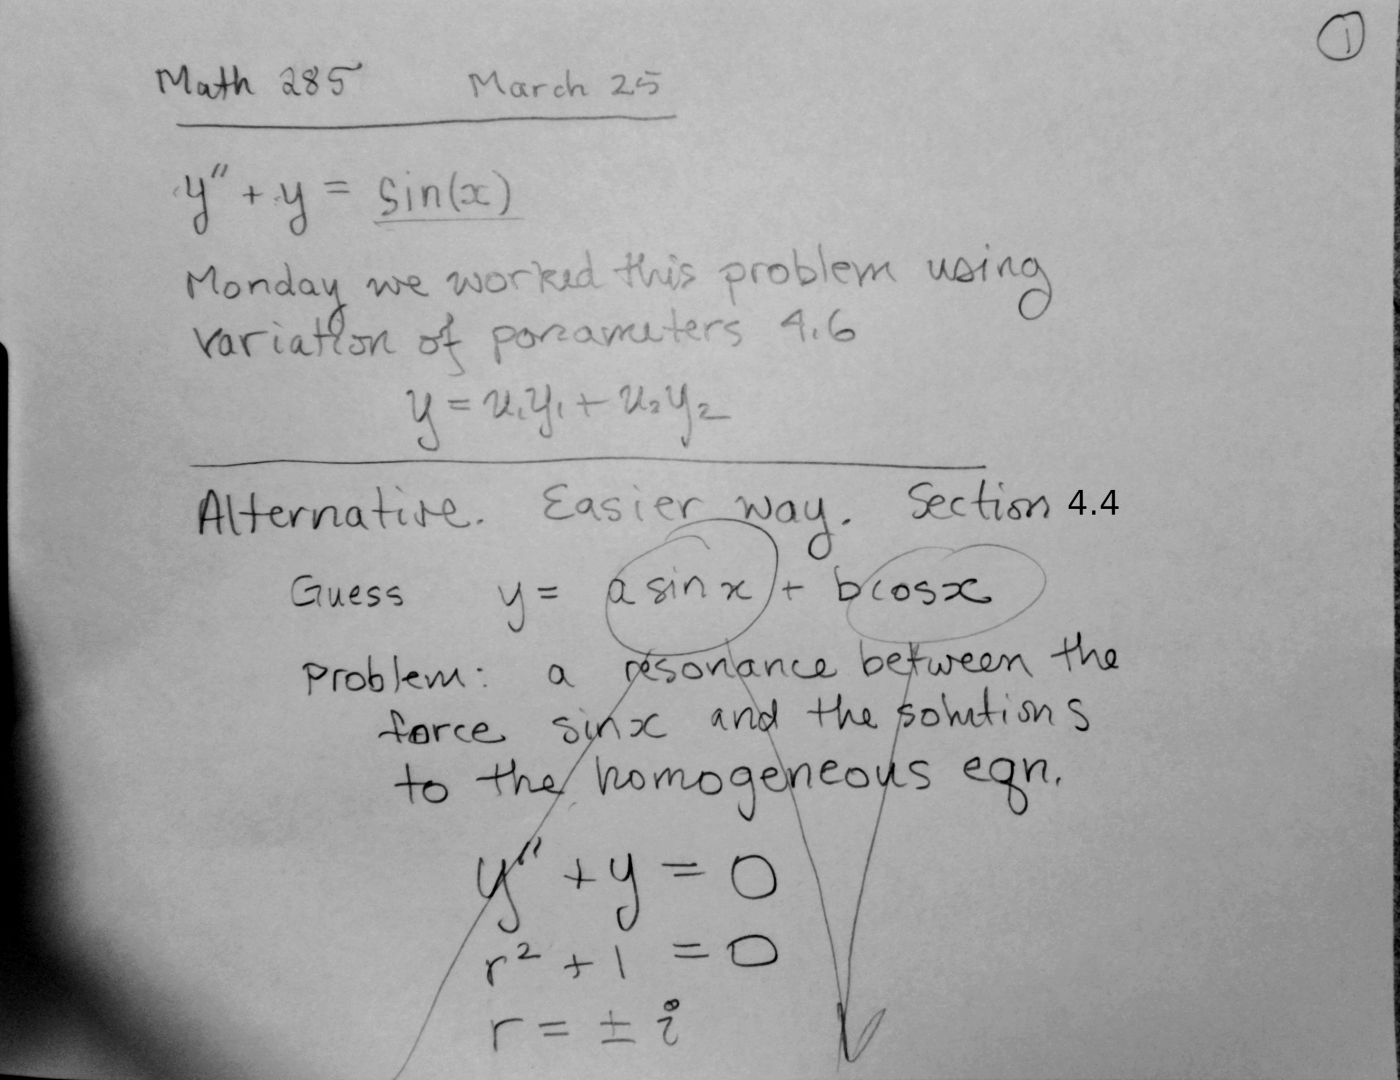 1
Math 285 March 25
y'' + y = sin(x)
Monday we worked this problem using
variation of parameters 4.6
y = u₁y₁ + u₂y₂
Alternative. Easier way. Section 4.4
Guess y = a sin x + b cos x
Problem: a resonance between the
force sin x and the solutions
to the homogeneous eqn.
y'' + y = 0
r² + 1 = 0
r = ± i